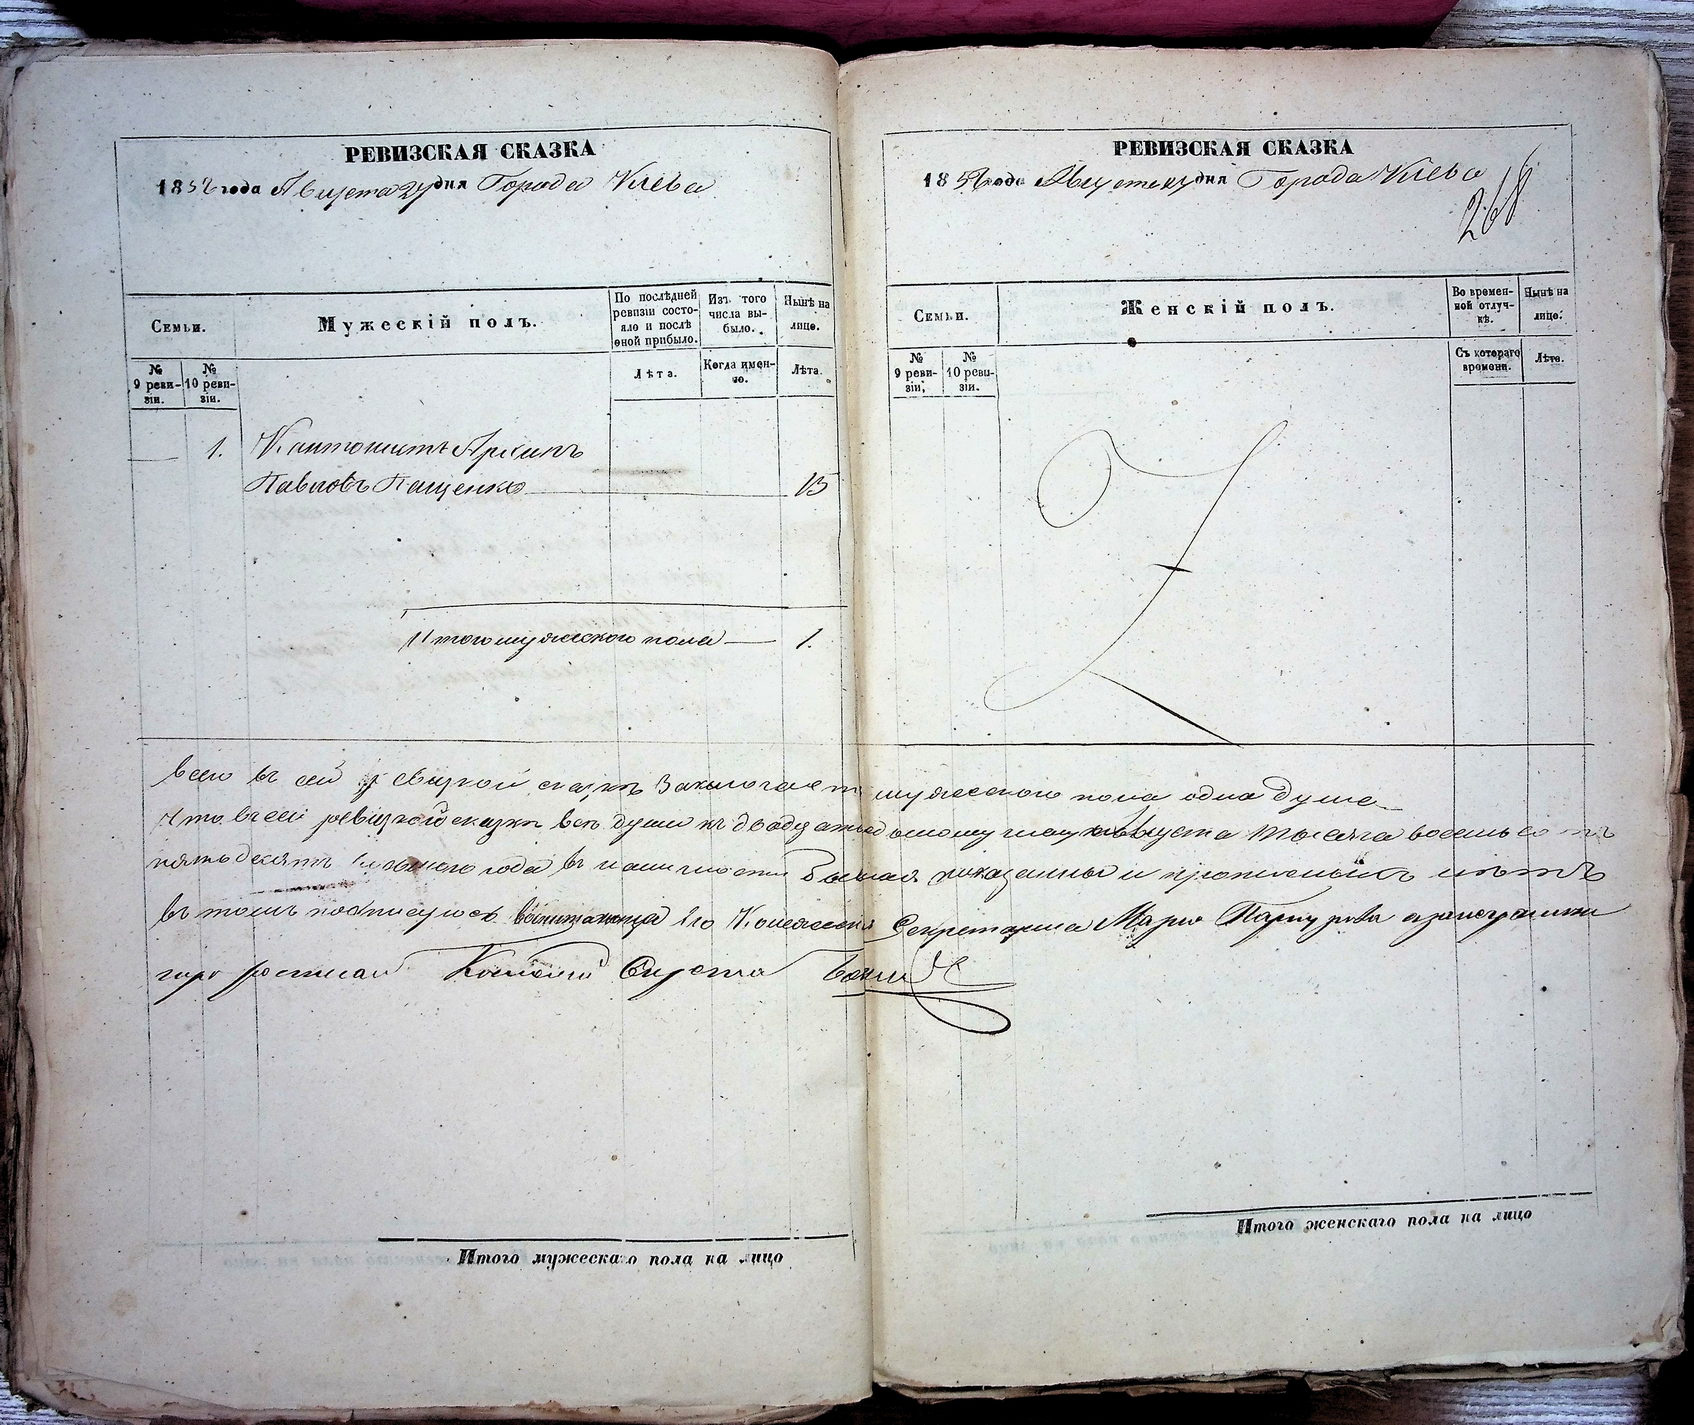 РЕВИЗСКАЯ СКАЗКА
1858 года Августа дня Города Киева
Семьи.
Мужескій полъ.
По послѣдней ревизіи состояло и послѣ оной прибыло.
Изъ того числа выбыло.
Нынѣ на лицо.
№ 9 ревизіи.
№ 10 ревизіи.
Лѣта.
Когда именно.
Лѣта.
1. Кантонистъ Архипъ
Павловъ Пащенко 15
Итого мужескаго пола 1.
РЕВИЗСКАЯ СКАЗКА
1858 года Августа дня Города Киева
268
Семьи.
Женскій полъ.
Во временной отлучкѣ.
Нынѣ на лицо.
№ 9 ревизіи.
№ 10 ревизіи.
Съ котораго времени.
Лѣта.
Всего въ сей ревизкой сказкѣ заключается мужескаго пола одна душа
Что въ сей ревизкой сказкѣ всѣ души къ двадцать числу Августа тысяча восемьсотъ
пятьдесятъ года въ наличности показаны и прописныхъ нѣтъ
въ томъ подписуюсь его Секретарша
Итого мужескаго пола на лицо
Итого женскаго пола на лицо